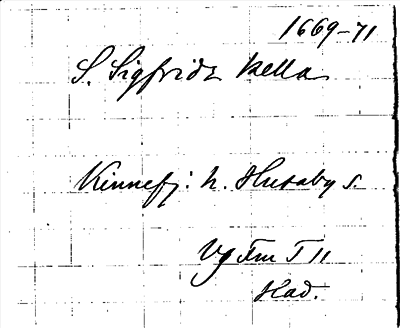 1669-71
S. Sigfrids källa
Kinnefj: h. Husaby s.
Vg Fm T 11
Had.